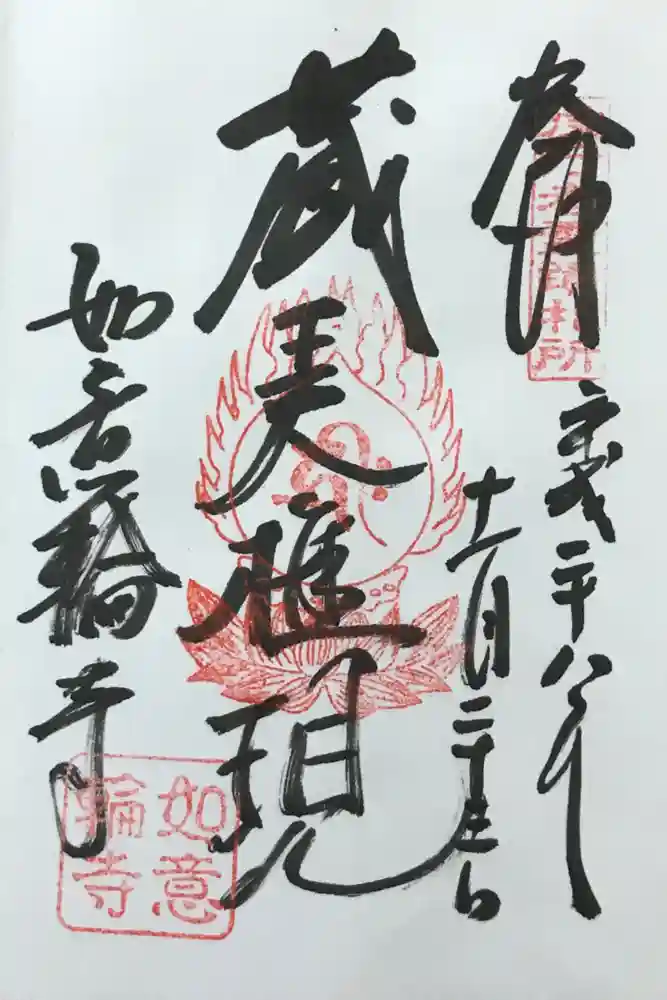 奉拝
平成二十八年
十一月二十日
蔵王大権現
如意輪寺
如意
輪寺